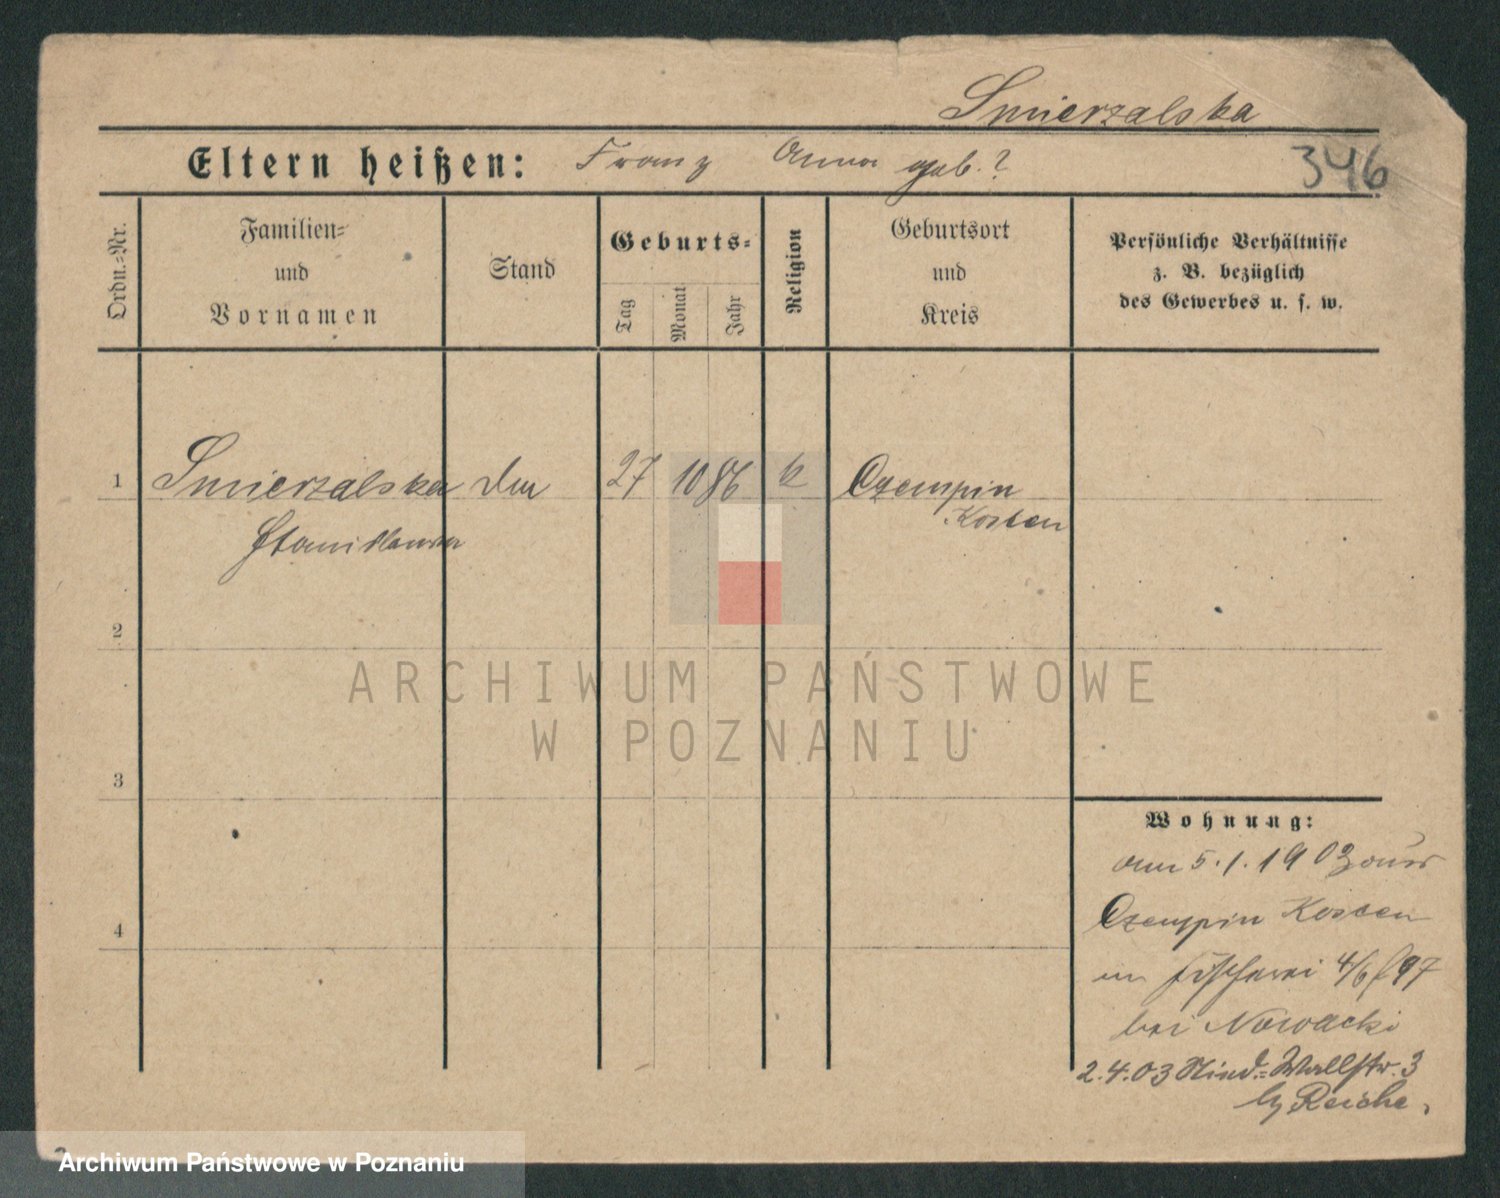 Smierzalska
Eltern heißen: Franz Anna geb. ?
346
Ordn.=Nr.
Familien=
und
Vornamen
Stand
Geburts=
Tag
Monat
Jahr
Religion
Geburtsort
und
Kreis
Persönliche Verhältnisse
z. B. bezüglich
des Gewerbes u. s. w.
1 Smierzalska 27 10 86 k Czempin
Kosten
Stanislawa
2
ARCHIWUM PAŃSTWOWE
W POZNANIU
3
Wohnung:
am 5.1.1903 aus
Czempin Kosten
4
Fischerei 4/6 97
bei Nowacki
2.4.03 Wallstr. 3
by Reiche.
Archiwum Państwowe w Poznaniu